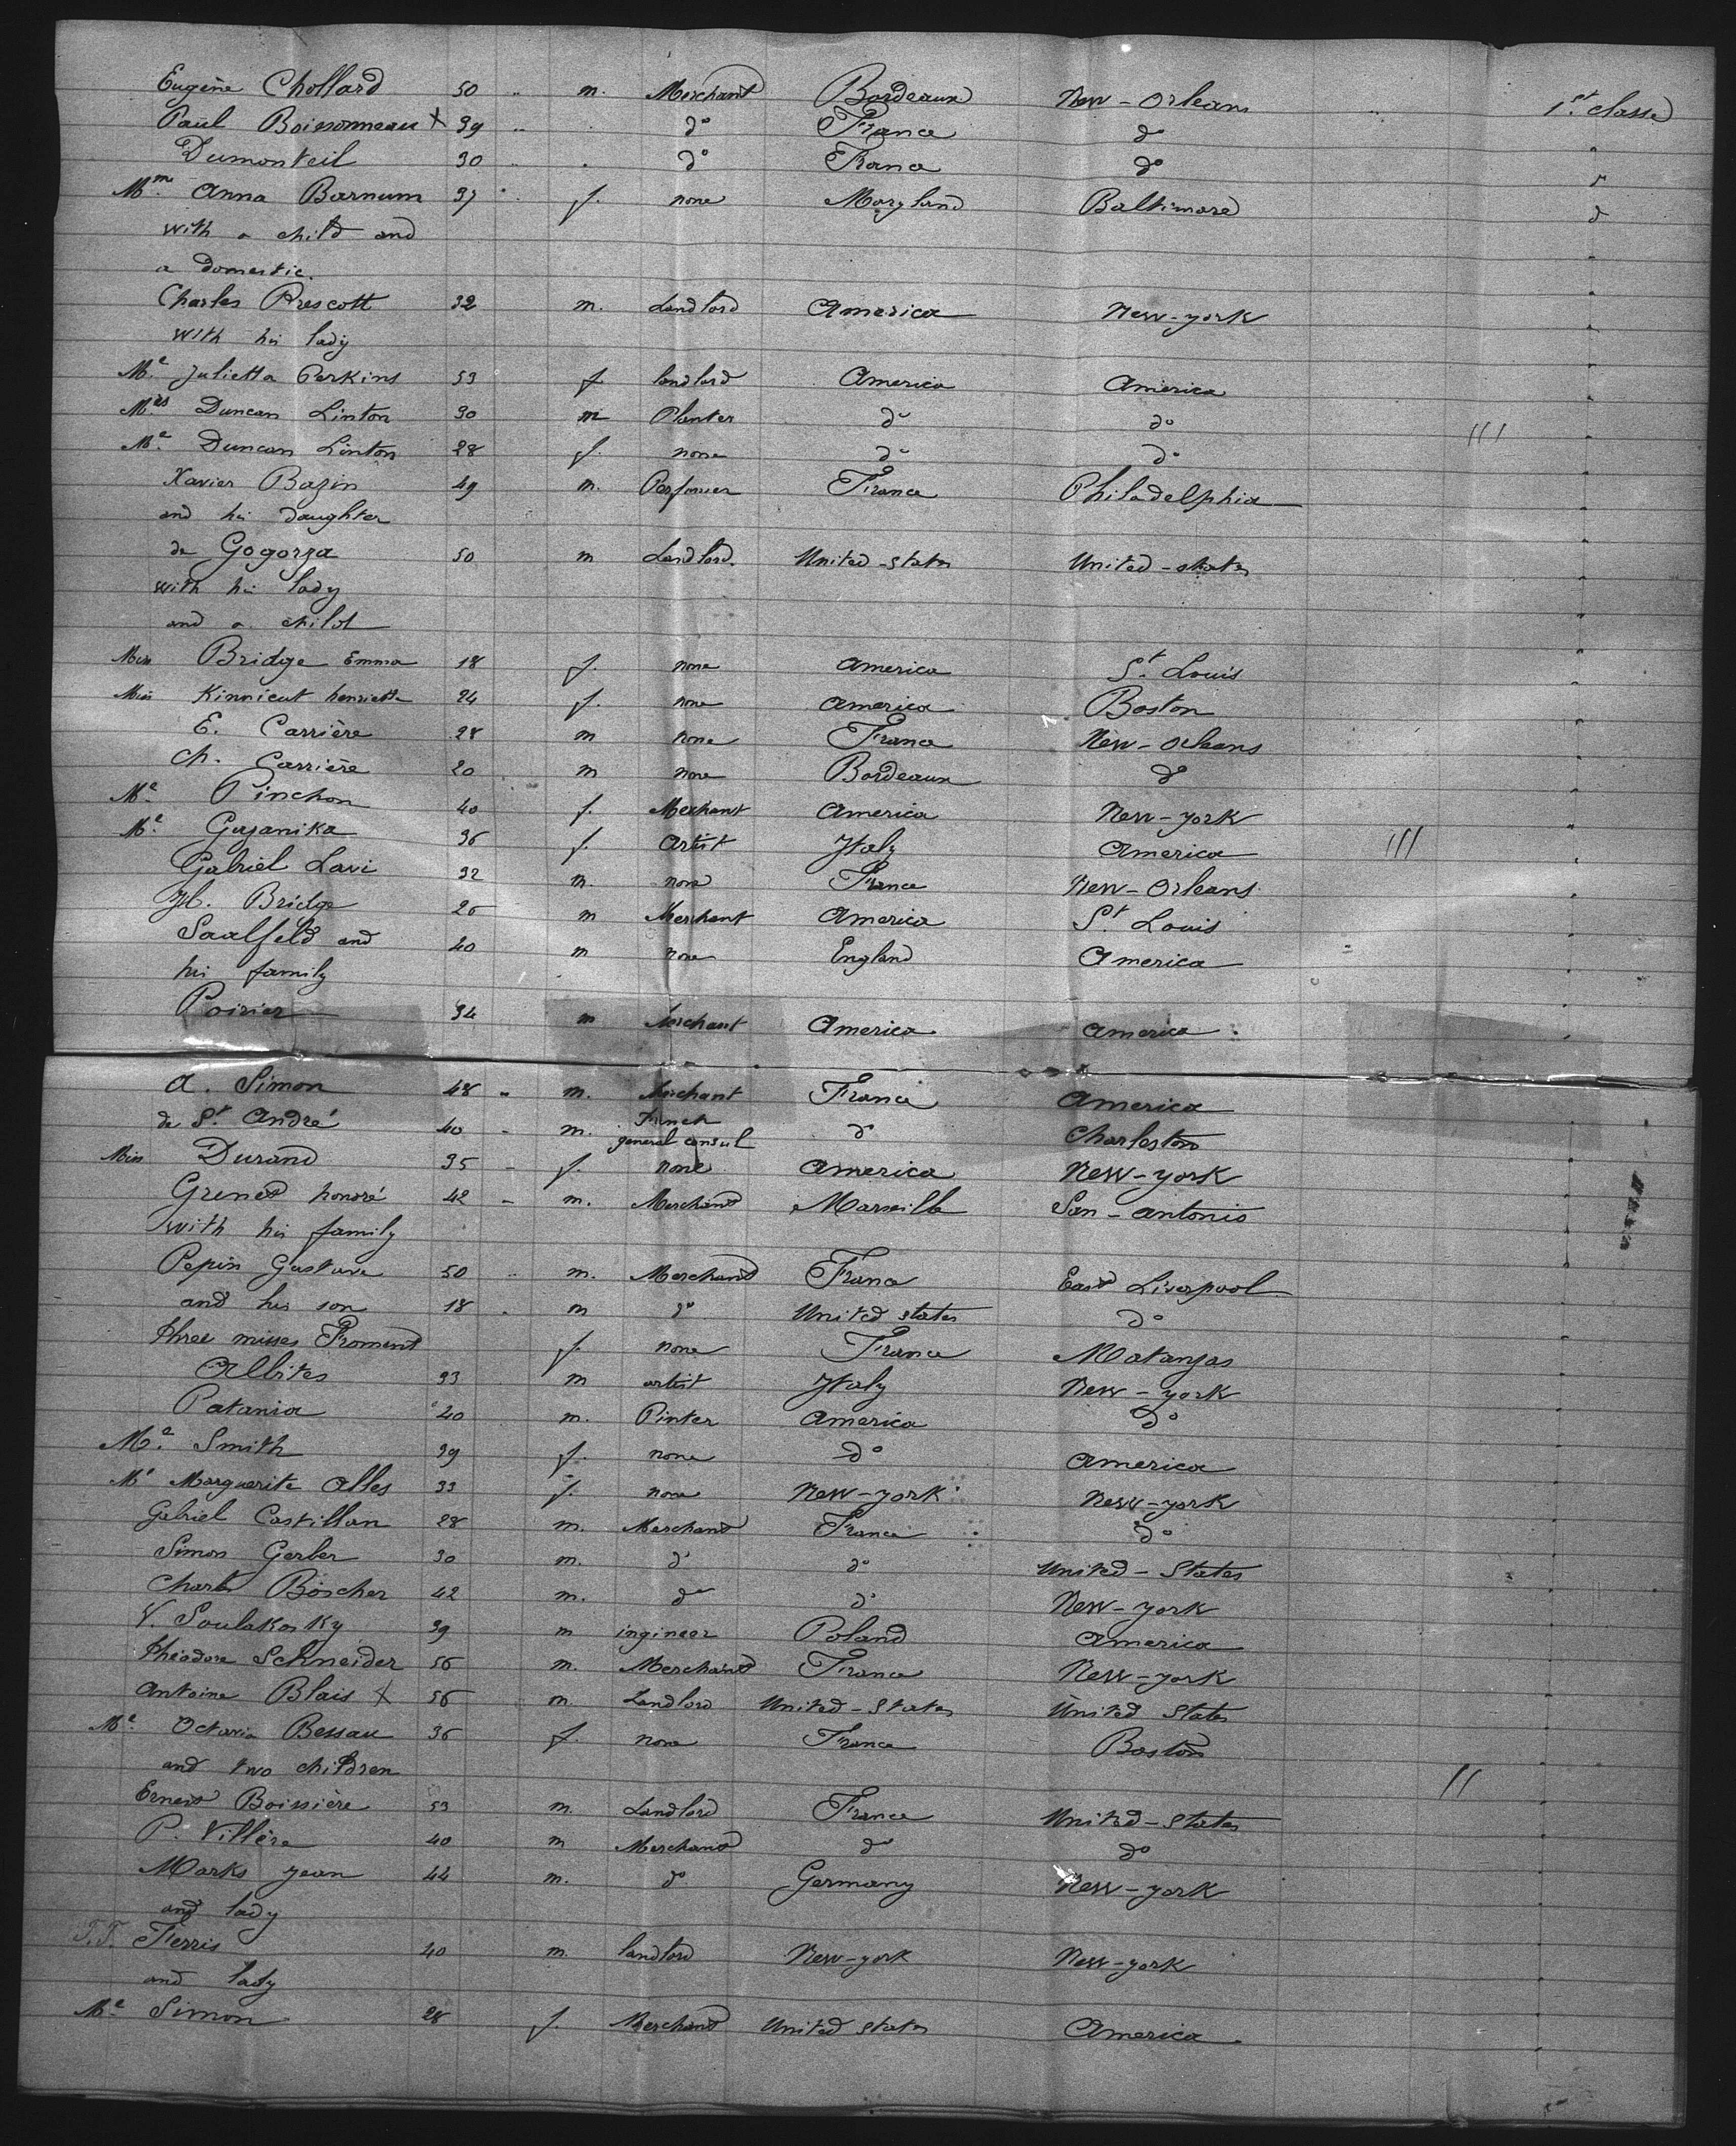 Eugène Chollard 50 " m. Merchant Bordeaux New-Orleans " 1st classe
Paul Boissonneau + 39 " d° France d° "
Dumonteil 30 " " d° France d° "
Mm. Anna Barnum 37 " f. none Maryland Baltimore d
with a child and
a domestic.
Charles Prescott 32 m. Landlord America New-york
with his lady
Me. Julietta Perkins 53 f landlord America America
Mrs Duncan Linton 30 m Planter d° d° ///
Me. Duncan Linton 28 f. none d° d°
Xavier Bazin 49 m. Perfumer France Philadelphia
and his daughter
de Gogorza 50 m Landlord. United-states United-states
with his lady
and a child
Miss Bridge Emma 18 f. none America St. Louis
Miss Kinnicut henrietta 24 f. none America Boston
E. Carrière 28 m none France New-Orleans
Ch. Carrière 20 m none Bordeaux d°
Me. Pinchon 40 f. Merchant America New-york
Me. Gazanika 36 f. Artist Italy America ///
Gabriel Lavi 32 m. none France New-Orleans
H. Bridge 26 m Merchant America St. Louis
Saalfeld and 40 m none England America
his family
Poirier 34 m Merchant America America
A. Simon 48 " m. Merchant France America
de St. André 40 " m. French general consul d° Charleston
Miss Durand 35 " f. none America New-york
Grenet honoré 42 " m. Merchant Marseille San-antonio
with his family
Pepin Gustave 50 " m. Merchant France East Liverpool
and his son 18 " m d° United states d°
three misses Froment f. none France Matanzas
Albites 33 m artist Italy New-york
Patania 40 m. Pinter America d°
Me. Smith 39 f. none d° America
Me Marguerite Alles 33 f. none New-york New-york
Gabriel Castillan 28 m. Merchant France d°
Simon Gerber 30 m. d° d° United-States
Charles Böscher 42 m. d° d° New-york
V. Soulakosky 39 m ingineer Poland America
théodore Schneider 56 m. Merchant France New-york
Antoine Blais + 56 m. Landlord United-States United States
Me. Octavia Bessau 36 f. none France Boston
and two children //
Ernest Boissière 53 m. Landlord France United-States
P. Villère 40 m Merchant d° d°
Marks jean 44 m. d° Germany New-york
and lady
T.T. Ferris 40 m landlord New-york New-york
and lady
Me Simon 28 f. Merchant United states America